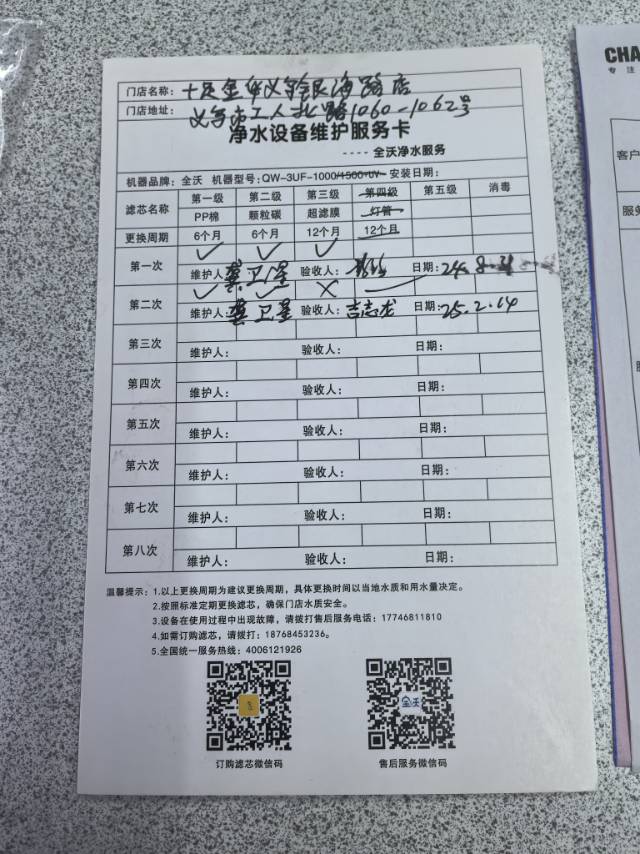 CHA
专 注
客户
服务
门店名称：十足金华义乌银海路店
门店地址：义乌市工人北路1060-1062号
净水设备维护服务卡
---- 全沃净水服务
机器品牌：全沃 机器型号：QW-3UF-1000/1500+UV 安装日期：
滤芯名称 第一级 第二级 第三级 第四级 第五级 消毒
PP棉 颗粒碳 超滤膜 灯管
更换周期 6个月 6个月 12个月 12个月
第一次 ✓ ✓ ✓
维护人：龚卫星 验收人： 日期：24.8.31
第二次 ✓ ✓ ✗ —
维护人：龚卫星 验收人：吉志龙 日期：25.2.14
第三次
维护人： 验收人： 日期：
第四次
维护人： 验收人： 日期：
第五次
维护人： 验收人： 日期：
第六次
维护人： 验收人： 日期：
第七次
维护人： 验收人： 日期：
第八次
维护人： 验收人： 日期：
温馨提示：1.以上更换周期为建议更换周期，具体更换时间以当地水质和用水量决定。
2.按照标准定期更换滤芯，确保门店水质安全。
3.设备在使用过程中出现故障，请拨打售后服务电话：17746811810
4.如需订购滤芯，请拨打：18768453236。
5.全国统一服务热线：4006121926
全沃
订购滤芯微信码 售后服务微信码